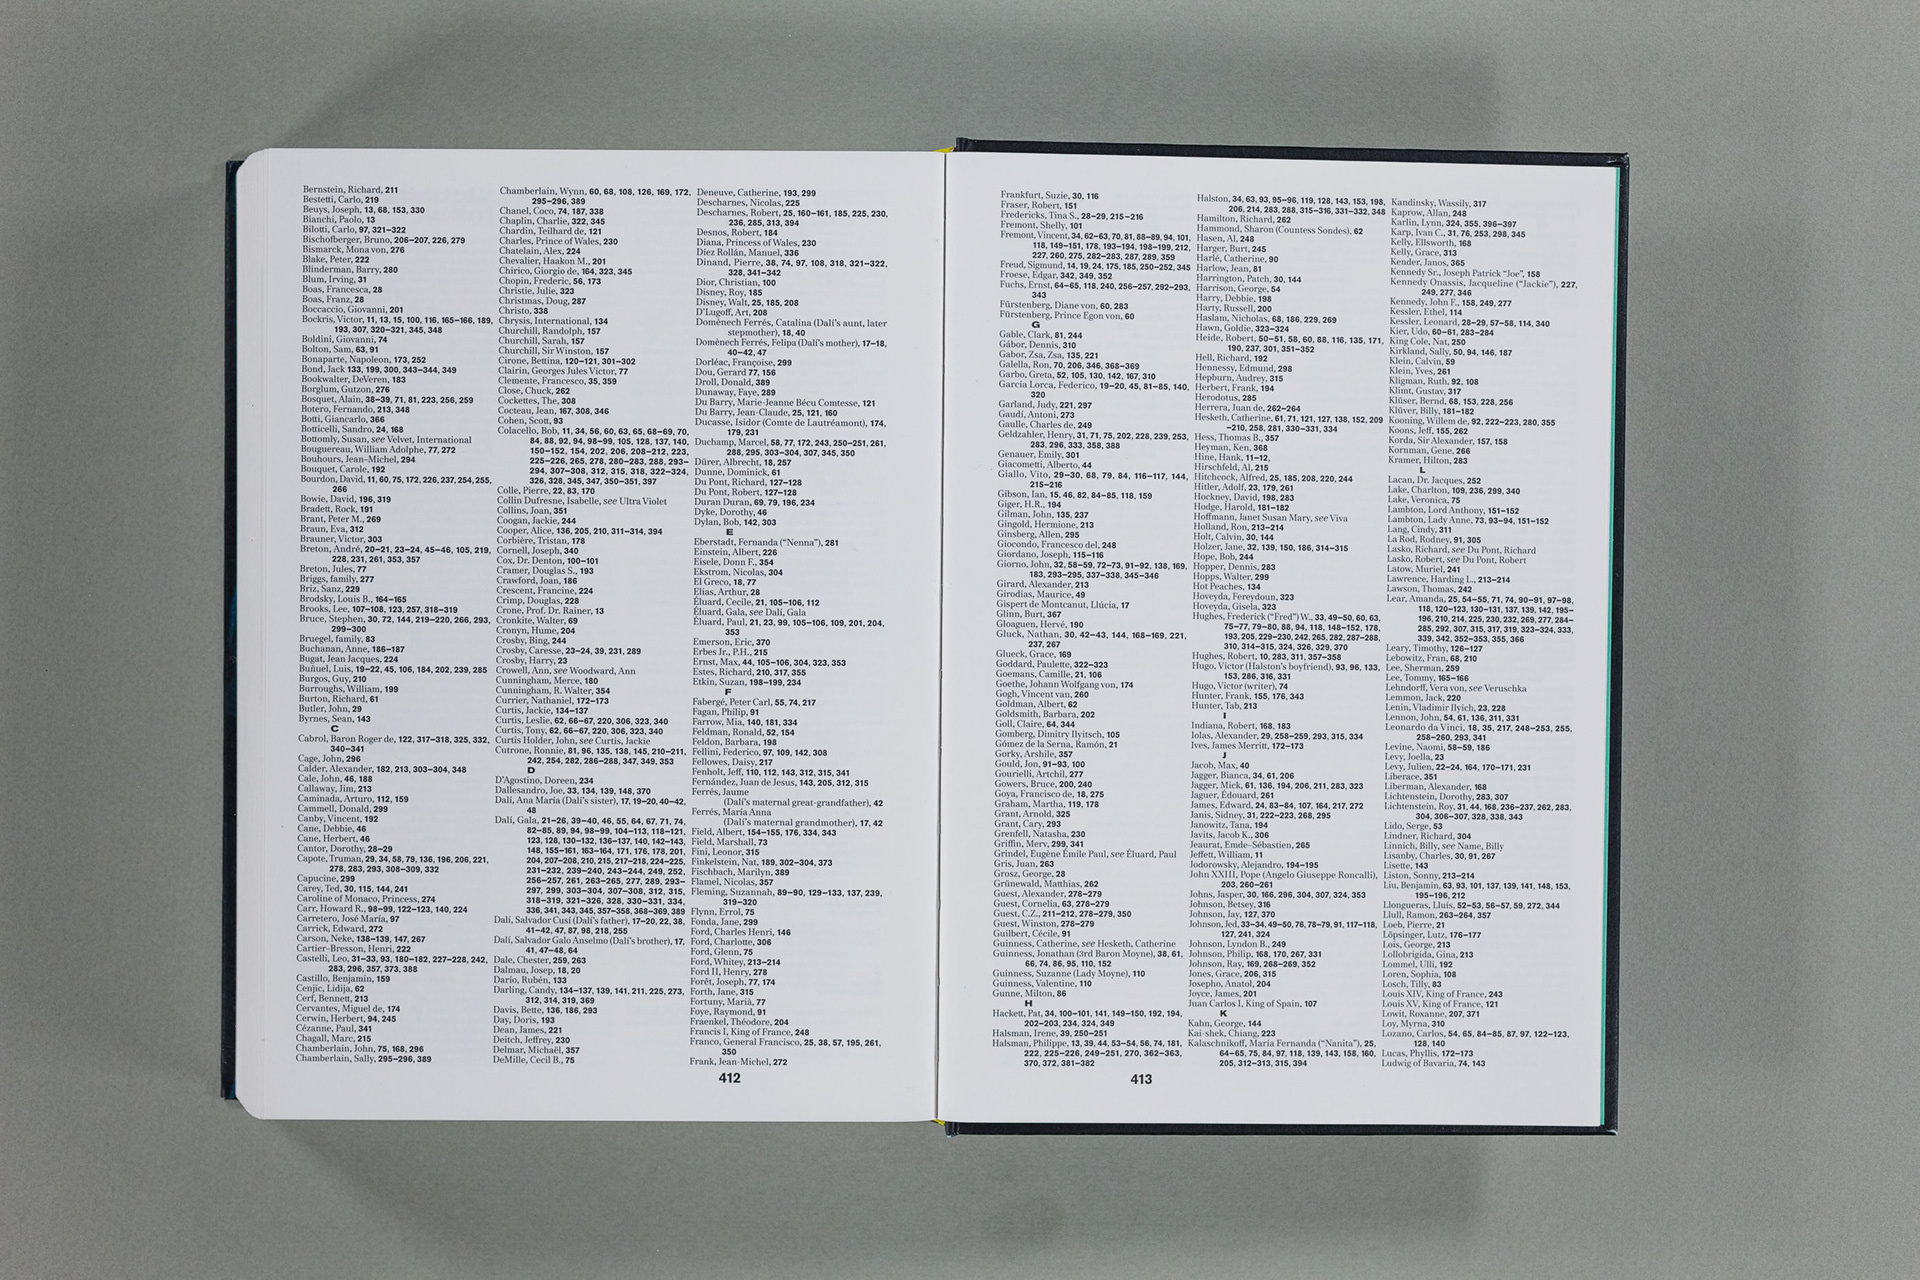 Bernstein, Richard, 211
Bestetti, Carlo, 219
Beuys, Joseph, 13, 68, 153, 330
Bianchi, Paolo, 13
Bilotti, Carlo, 97, 321–322
Bischofberger, Bruno, 206–207, 226, 279
Bismarck, Mona von, 276
Blake, Peter, 222
Blinderman, Barry, 280
Blum, Irving, 31
Boas, Francesca, 28
Boas, Franz, 28
Boccaccio, Giovanni, 201
Bockris, Victor, 11, 13, 15, 100, 116, 165–166, 189,
193, 307, 320–321, 345, 348
Boldini, Giovanni, 74
Bolton, Sam, 63, 91
Bonaparte, Napoleon, 173, 252
Bond, Jack 133, 199, 300, 343–344, 349
Bookwalter, DeVeren, 183
Borglum, Gutzon, 276
Bosquet, Alain, 38–39, 71, 81, 223, 256, 259
Botero, Fernando, 213, 348
Botti, Giancarlo, 366
Botticelli, Sandro, 24, 168
Bottomly, Susan, see Velvet, International
Bouguereau, William Adolphe, 77, 272
Bouhours, Jean-Michel, 294
Bouquet, Carole, 192
Bourdon, David, 11, 60, 75, 172, 226, 237, 254, 255,
266
Bowie, David, 196, 319
Bradett, Rock, 191
Brant, Peter M., 269
Braun, Eva, 312
Brauner, Victor, 303
Breton, André, 20–21, 23–24, 45–46, 105, 219,
228, 231, 261, 353, 357
Breton, Jules, 77
Briggs, family, 277
Briz, Sanz, 229
Brodsky, Louis B., 164–165
Brooks, Lee, 107–108, 123, 257, 318–319
Bruce, Stephen, 30, 72, 144, 219–220, 266, 293,
299–300
Bruegel, family, 83
Buchanan, Anne, 186–187
Bugat, Jean Jacques, 224
Buñuel, Luis, 19–22, 45, 106, 184, 202, 239, 285
Burgos, Guy, 210
Burroughs, William, 199
Burton, Richard, 61
Butler, John, 29
Byrnes, Sean, 143
C
Cabrol, Baron Roger de, 122, 317–318, 325, 332,
340–341
Cage, John, 296
Calder, Alexander, 182, 213, 303–304, 348
Cale, John, 46, 188
Callaway, Jim, 213
Caminada, Arturo, 112, 159
Cammell, Donald, 299
Canby, Vincent, 192
Cane, Debbie, 46
Cane, Herbert, 46
Cantor, Dorothy, 28–29
Capote, Truman, 29, 34, 58, 79, 136, 196, 206, 221,
278, 283, 293, 308–309, 332
Capucine, 299
Carey, Ted, 30, 115, 144, 241
Caroline of Monaco, Princess, 274
Carr, Howard R., 98–99, 122–123, 140, 224
Carretero, José María, 97
Carrick, Edward, 272
Carson, Neke, 138–139, 147, 267
Cartier-Bresson, Henri, 222
Castelli, Leo, 31–33, 93, 180–182, 227–228, 242,
283, 296, 357, 373, 388
Castillo, Benjamin, 159
Cenjic, Lidija, 62
Cerf, Bennett, 213
Cervantes, Miguel de, 174
Cerwin, Herbert, 94, 245
Cézanne, Paul, 341
Chagall, Marc, 215
Chamberlain, John, 75, 168, 296
Chamberlain, Sally, 295–296, 389
Chamberlain, Wynn, 60, 68, 108, 126, 169, 172,
295–296, 389
Chanel, Coco, 74, 187, 338
Chaplin, Charlie, 322, 345
Chardin, Teilhard de, 121
Charles, Prince of Wales, 230
Chatelain, Alex, 224
Chevalier, Haakon M., 201
Chirico, Giorgio de, 164, 323, 345
Chopin, Frederic, 56, 173
Christie, Julie, 323
Christmas, Doug, 287
Christo, 338
Chrysis, International, 134
Churchill, Randolph, 157
Churchill, Sarah, 157
Churchill, Sir Winston, 157
Cirone, Bettina, 120–121, 301–302
Clairin, Georges Jules Victor, 77
Clemente, Francesco, 35, 359
Close, Chuck, 262
Cockettes, The, 308
Cocteau, Jean, 167, 308, 346
Cohen, Scott, 93
Colacello, Bob, 11, 34, 56, 60, 63, 65, 68–69, 70,
84, 88, 92, 94, 98–99, 105, 128, 137, 140,
150–152, 154, 202, 206, 208–212, 223,
225–226, 265, 278, 280–283, 288, 293–
294, 307–308, 312, 315, 318, 322–324,
326, 328, 345, 347, 350–351, 397
Colle, Pierre, 22, 83, 170
Collin Dufresne, Isabelle, see Ultra Violet
Collins, Joan, 351
Coogan, Jackie, 244
Cooper, Alice, 136, 205, 210, 311–314, 394
Corbière, Tristan, 178
Cornell, Joseph, 340
Cox, Dr. Denton, 100–101
Cramer, Douglas S., 193
Crawford, Joan, 186
Crescent, Francine, 224
Crimp, Douglas, 228
Crone, Prof. Dr. Rainer, 13
Cronkite, Walter, 69
Cronyn, Hume, 204
Crosby, Bing, 244
Crosby, Caresse, 23–24, 39, 231, 289
Crosby, Harry, 23
Crowell, Ann, see Woodward, Ann
Cunningham, Merce, 180
Cunningham, R. Walter, 354
Currier, Nathaniel, 172–173
Curtis, Jackie, 134–137
Curtis, Leslie, 62, 66–67, 220, 306, 323, 340
Curtis, Tony, 62, 66–67, 220, 306, 323, 340
Curtis Holder, John, see Curtis, Jackie
Cutrone, Ronnie, 81, 96, 135, 138, 145, 210–211,
242, 254, 282, 286–288, 347, 349, 353
D
D'Agostino, Doreen, 234
Dallesandro, Joe, 33, 134, 139, 148, 370
Dalí, Ana María (Dalí's sister), 17, 19–20, 40–42,
48
Dalí, Gala, 21–26, 39–40, 46, 55, 64, 67, 71, 74,
82–85, 89, 94, 98–99, 104–113, 118–121,
123, 128, 130–132, 136–137, 140, 142–143,
148, 155–161, 163–164, 171, 176, 178, 201,
204, 207–208, 210, 215, 217–218, 224–225,
231–232, 239–240, 243–244, 249, 252,
256–257, 261, 263–265, 277, 289, 293–
297, 299, 303–304, 307–308, 312, 315,
318–319, 321–326, 328, 330–331, 334,
336, 341, 343, 345, 357–358, 368–369, 389
Dalí, Salvador Cusí (Dalí's father), 17–20, 22, 38,
41–42, 47, 87, 98, 218, 255
Dalí, Salvador Galo Anselmo (Dalí's brother), 17,
41, 47–48, 64
Dale, Chester, 259, 263
Dalmau, Josep, 18, 20
Darío, Rubén, 133
Darling, Candy, 134–137, 139, 141, 211, 225, 273,
312, 314, 319, 369
Davis, Bette, 136, 186, 293
Day, Doris, 193
Dean, James, 221
Deitch, Jeffrey, 230
Delmar, Michaël, 357
DeMille, Cecil B., 75
Deneuve, Catherine, 193, 299
Descharnes, Nicolas, 225
Descharnes, Robert, 25, 160–161, 185, 225, 230,
236, 285, 313, 394
Desnos, Robert, 184
Diana, Princess of Wales, 230
Díez Rollán, Manuel, 336
Dinand, Pierre, 38, 74, 97, 108, 318, 321–322,
328, 341–342
Dior, Christian, 100
Disney, Roy, 185
Disney, Walt, 25, 185, 208
D'Lugoff, Art, 208
Domènech Ferrés, Catalina (Dalí's aunt, later
stepmother), 18, 40
Domènech Ferrés, Felipa (Dalí's mother), 17–18,
40–42, 47
Dorléac, Françoise, 299
Dou, Gerard 77, 156
Droll, Donald, 389
Dunaway, Faye, 289
Du Barry, Marie-Jeanne Bécu Comtesse, 121
Du Barry, Jean-Claude, 25, 121, 160
Ducasse, Isidor (Comte de Lautréamont), 174,
179, 231
Duchamp, Marcel, 58, 77, 172, 243, 250–251, 261,
288, 295, 303–304, 307, 345, 350
Dürer, Albrecht, 18, 257
Dunne, Dominick, 61
Du Pont, Richard, 127–128
Du Pont, Robert, 127–128
Duran Duran, 69, 79, 196, 234
Dyke, Dorothy, 46
Dylan, Bob, 142, 303
E
Eberstadt, Fernanda (“Nenna”), 281
Einstein, Albert, 226
Eisele, Donn F., 354
Ekstrom, Nicolas, 304
El Greco, 18, 77
Elias, Arthur, 28
Éluard, Cecile, 21, 105–106, 112
Éluard, Gala, see Dalí, Gala
Éluard, Paul, 21, 23, 99, 105–106, 109, 201, 204,
353
Emerson, Eric, 370
Erbes Jr., P.H., 215
Ernst, Max, 44, 105–106, 304, 323, 353
Estes, Richard, 210, 317, 355
Etkin, Suzan, 198–199, 234
F
Fabergé, Peter Carl, 55, 74, 217
Fagan, Philip, 91
Farrow, Mia, 140, 181, 334
Feldman, Ronald, 52, 154
Feldon, Barbara, 198
Fellini, Federico, 97, 109, 142, 308
Fellowes, Daisy, 217
Fenholt, Jeff, 110, 112, 143, 312, 315, 341
Fernández, Juan de Jesus, 143, 205, 312, 315
Ferrés, Jaume
(Dalí's maternal great-grandfather), 42
Ferrés, María Anna
(Dalí's maternal grandmother), 17, 42
Field, Albert, 154–155, 176, 334, 343
Field, Marshall, 73
Fini, Leonor, 315
Finkelstein, Nat, 189, 302–304, 373
Fischbach, Marilyn, 389
Flamel, Nicolas, 357
Fleming, Suzannah, 89–90, 129–133, 137, 239,
319–320
Flynn, Errol, 75
Fonda, Jane, 299
Ford, Charles Henri, 146
Ford, Charlotte, 306
Ford, Glenn, 75
Ford, Whitey, 213–214
Ford II, Henry, 278
Forêt, Joseph, 77, 174
Forth, Jane, 315
Fortuny, Marià, 77
Foye, Raymond, 91
Fraenkel, Théodore, 204
Francis I, King of France, 248
Franco, General Francisco, 25, 38, 57, 195, 261,
350
Frank, Jean-Michel, 272
412
Frankfurt, Suzie, 30, 116
Fraser, Robert, 151
Fredericks, Tina S., 28–29, 215–216
Fremont, Shelly, 101
Fremont, Vincent, 34, 62–63, 70, 81, 88–89, 94, 101,
118, 149–151, 178, 193–194, 198–199, 212,
227, 260, 275, 282–283, 287, 289, 359
Freud, Sigmund, 14, 19, 24, 175, 185, 250–252, 345
Froese, Edgar, 342, 349, 352
Fuchs, Ernst, 64–65, 118, 240, 256–257, 292–293,
343
Fürstenberg, Diane von, 60, 283
Fürstenberg, Prince Egon von, 60
G
Gable, Clark, 81, 244
Gábor, Dennis, 310
Gabor, Zsa, Zsa, 135, 221
Galella, Ron, 70, 206, 346, 368–369
Garbo, Greta, 52, 105, 130, 142, 167, 310
García Lorca, Federico, 19–20, 45, 81–85, 140,
320
Garland, Judy, 221, 297
Gaudí, Antoni, 273
Gaulle, Charles de, 249
Geldzahler, Henry, 31, 71, 75, 202, 228, 239, 253,
283, 296, 333, 358, 388
Genauer, Emily, 301
Giacometti, Alberto, 44
Giallo, Vito, 29–30, 68, 79, 84, 116–117, 144,
215–216
Gibson, Ian, 15, 46, 82, 84–85, 118, 159
Giger, H.R., 194
Gilman, John, 135, 237
Gingold, Hermione, 213
Ginsberg, Allen, 295
Giocondo, Francesco del, 248
Giordano, Joseph, 115–116
Giorno, John, 32, 58–59, 72–73, 91–92, 138, 169,
183, 293–295, 337–338, 345–346
Girard, Alexander, 213
Girodias, Maurice, 49
Gispert de Montcanut, Llúcia, 17
Glinn, Burt, 367
Gloaguen, Hervé, 190
Gluck, Nathan, 30, 42–43, 144, 168–169, 221,
237, 267
Glueck, Grace, 169
Goddard, Paulette, 322–323
Goemans, Camille, 21, 106
Goethe, Johann Wolfgang von, 174
Gogh, Vincent van, 260
Goldman, Albert, 62
Goldsmith, Barbara, 202
Goll, Claire, 64, 344
Gomberg, Dimitry Ilyitsch, 105
Gómez de la Serna, Ramón, 21
Gorky, Arshile, 357
Gould, Jon, 91–93, 100
Gourielli, Artchil, 277
Gowers, Bruce, 200, 240
Goya, Francisco de, 18, 275
Graham, Martha, 119, 178
Grant, Arnold, 325
Grant, Cary, 293
Grenfell, Natasha, 230
Griffin, Merv, 299, 341
Grindel, Eugène Émile Paul, see Éluard, Paul
Gris, Juan, 263
Grosz, George, 28
Grünewald, Matthias, 262
Guest, Alexander, 278–279
Guest, Cornelia, 63, 278–279
Guest, C.Z., 211–212, 278–279, 350
Guest, Winston, 278–279
Guilbert, Cécile, 91
Guinness, Catherine, see Hesketh, Catherine
Guinness, Jonathan (3rd Baron Moyne), 38, 61,
66, 74, 86, 95, 110, 152
Guinness, Suzanne (Lady Moyne), 110
Guinness, Valentine, 110
Gunne, Milton, 86
H
Hackett, Pat, 34, 100–101, 141, 149–150, 192, 194,
202–203, 234, 324, 349
Halsman, Irene, 39, 250–251
Halsman, Philippe, 13, 39, 44, 53–54, 56, 74, 181,
222, 225–226, 249–251, 270, 362–363,
370, 372, 381–382
Halston, 34, 63, 93, 95–96, 119, 128, 143, 153, 198,
206, 214, 283, 288, 315–316, 331–332, 348
Hamilton, Richard, 262
Hammond, Sharon (Countess Sondes), 62
Hasen, Al, 248
Harger, Burt, 245
Harlé, Catherine, 90
Harlow, Jean, 81
Harrington, Patch, 30, 144
Harrison, George, 54
Harry, Debbie, 198
Harty, Russell, 200
Haslam, Nicholas, 68, 186, 229, 269
Hawn, Goldie, 323–324
Heide, Robert, 50–51, 58, 60, 88, 116, 135, 171,
190, 237, 301, 351–352
Hell, Richard, 192
Hennessy, Edmund, 298
Hepburn, Audrey, 315
Herbert, Frank, 194
Herodotus, 285
Herrera, Juan de, 262–264
Hesketh, Catherine, 61, 71, 121, 127, 138, 152, 209
–210, 258, 281, 330–331, 334
Hess, Thomas B., 357
Heyman, Ken, 368
Hine, Hank, 11–12,
Hirschfeld, Al, 215
Hitchcock, Alfred, 25, 185, 208, 220, 244
Hitler, Adolf, 23, 179, 261
Hockney, David, 198, 283
Hodge, Harold, 181–182
Hoffmann, Janet Susan Mary, see Viva
Holland, Ron, 213–214
Holt, Calvin, 30, 144
Holzer, Jane, 32, 139, 150, 186, 314–315
Hope, Bob, 244
Hopper, Dennis, 283
Hopps, Walter, 299
Hot Peaches, 134
Hoveyda, Fereydoun, 323
Hoveyda, Gisela, 323
Hughes, Frederick (“Fred”) W., 33, 49–50, 60, 63,
75–77, 79–80, 88, 94, 118, 148–152, 178,
193, 205, 229–230, 242, 265, 282, 287–288,
310, 314–315, 324, 326, 329, 370
Hughes, Robert, 10, 283, 311, 357–358
Hugo, Victor (Halston's boyfriend), 93, 96, 133,
153, 286, 316, 331
Hugo, Victor (writer), 74
Hunter, Frank, 155, 176, 343
Hunter, Tab, 213
I
Indiana, Robert, 168, 183
Iolas, Alexander, 29, 258–259, 293, 315, 334
Ives, James Merritt, 172–173
J
Jacob, Max, 40
Jagger, Bianca, 34, 61, 206
Jagger, Mick, 61, 136, 194, 206, 211, 283, 323
Jaguer, Édouard, 261
James, Edward, 24, 83–84, 107, 164, 217, 272
Janis, Sidney, 31, 222–223, 268, 295
Janowitz, Tana, 194
Javits, Jacob K., 306
Jeaurat, Emde-Sébastien, 265
Jeffett, William, 11
Jodorowsky, Alejandro, 194–195
John XXIII, Pope (Angelo Giuseppe Roncalli),
203, 260–261
Johns, Jasper, 30, 166, 296, 304, 307, 324, 353
Johnson, Betsey, 316
Johnson, Jay, 127, 370
Johnson, Jed, 33–34, 49–50, 76, 78–79, 91, 117–118,
127, 241, 324
Johnson, Lyndon B., 249
Johnson, Philip, 168, 170, 267, 331
Johnson, Ray, 169, 268–269, 352
Jones, Grace, 206, 315
Josepho, Anatol, 204
Joyce, James, 201
Juan Carlos I, King of Spain, 107
K
Kahn, George, 144
Kai-shek, Chiang, 223
Kalaschnikoff, María Fernanda (“Nanita”), 25,
64–65, 75, 84, 97, 118, 139, 143, 158, 160,
205, 312–313, 315, 394
Kandinsky, Wassily, 317
Kaprow, Allan, 248
Karlin, Lynn, 324, 355, 396–397
Karp, Ivan C., 31, 76, 253, 298, 345
Kelly, Ellsworth, 168
Kelly, Grace, 313
Kender, Janos, 365
Kennedy Sr., Joseph Patrick “Joe”, 158
Kennedy Onassis, Jacqueline (“Jackie”), 227,
249, 277, 346
Kennedy, John F., 158, 249, 277
Kessler, Ethel, 114
Kessler, Leonard, 28–29, 57–58, 114, 340
Kier, Udo, 60–61, 283–284
King Cole, Nat, 250
Kirkland, Sally, 50, 94, 146, 187
Klein, Calvin, 59
Klein, Yves, 261
Kligman, Ruth, 92, 108
Klimt, Gustav, 317
Klüser, Bernd, 68, 153, 228, 256
Klüver, Billy, 181–182
Kooning, Willem de, 92, 222–223, 280, 355
Koons, Jeff, 155, 262
Korda, Sir Alexander, 157, 158
Kornman, Gene, 266
Kramer, Hilton, 283
L
Lacan, Dr. Jacques, 252
Lake, Charlton, 109, 236, 299, 340
Lake, Veronica, 75
Lambton, Lord Anthony, 151–152
Lambton, Lady Anne, 73, 93–94, 151–152
Lang, Cindy, 311
La Rod, Rodney, 91, 305
Lasko, Richard, see Du Pont, Richard
Lasko, Robert, see Du Pont, Robert
Latow, Muriel, 241
Lawrence, Harding L., 213–214
Lawson, Thomas, 242
Lear, Amanda, 25, 54–55, 71, 74, 90–91, 97–98,
118, 120–123, 130–131, 137, 139, 142, 195–
196, 210, 214, 225, 230, 232, 269, 277, 284–
285, 292, 307, 315, 317, 319, 323–324, 333,
339, 342, 352–353, 355, 366
Leary, Timothy, 126–127
Lebowitz, Fran, 68, 210
Lee, Sherman, 259
Lee, Tommy, 165–166
Lehndorff, Vera von, see Veruschka
Lemmon, Jack, 220
Lenin, Vladimir Ilyich, 23, 228
Lennon, John, 54, 61, 136, 311, 331
Leonardo da Vinci, 18, 35, 217, 248–253, 255,
258–260, 293, 341
Levine, Naomi, 58–59, 186
Levy, Joella, 23
Levy, Julien, 22–24, 164, 170–171, 231
Liberace, 351
Liberman, Alexander, 168
Lichtenstein, Dorothy, 283, 307
Lichtenstein, Roy, 31, 44, 168, 236–237, 262, 283,
304, 306–307, 328, 338, 343
Lido, Serge, 53
Lindner, Richard, 304
Linnich, Billy, see Name, Billy
Lisanby, Charles, 30, 91, 267
Lisette, 143
Liston, Sonny, 213–214
Liu, Benjamin, 63, 93, 101, 137, 139, 141, 148, 153,
195–196, 212
Llongueras, Lluís, 52–53, 56–57, 59, 272, 344
Llull, Ramon, 263–264, 357
Loeb, Pierre, 21
Löpsinger, Lutz, 176–177
Lois, George, 213
Lollobrigida, Gina, 213
Lommel, Ulli, 192
Loren, Sophia, 108
Losch, Tilly, 83
Louis XIV, King of France, 243
Louis XV, King of France, 121
Lowit, Roxanne, 207, 371
Loy, Myrna, 310
Lozano, Carlos, 54, 65, 84–85, 87, 97, 122–123,
128, 140
Lucas, Phyllis, 172–173
Ludwig of Bavaria, 74, 143
413